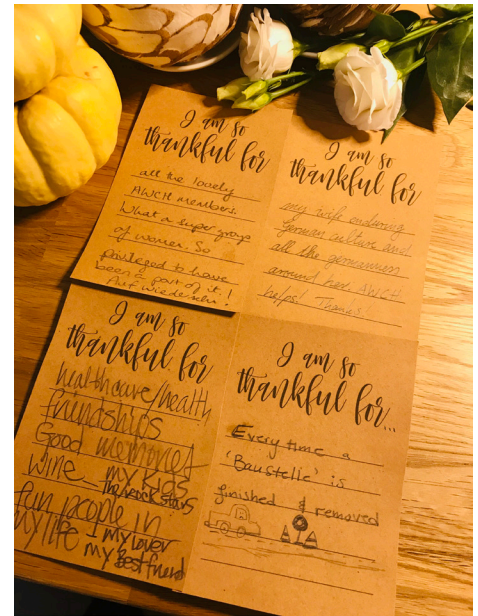 I am so
thankful for
all the lovely
AWCH members.
What a super group
of women. So
privileged to have
been a part of it.
Auf wiedersehn!
I am so
thankful for
my wife enduring
German culture and
all the
around her. AWCH
helps! Thanks!
I am so
thankful for
healthcare/health
friendships
Good memories
wine my kids
The rock stars
fun people in
my life my lover
my Best friend
I am so
thankful for...
Every time a
'Baustelle' is
finished & removed